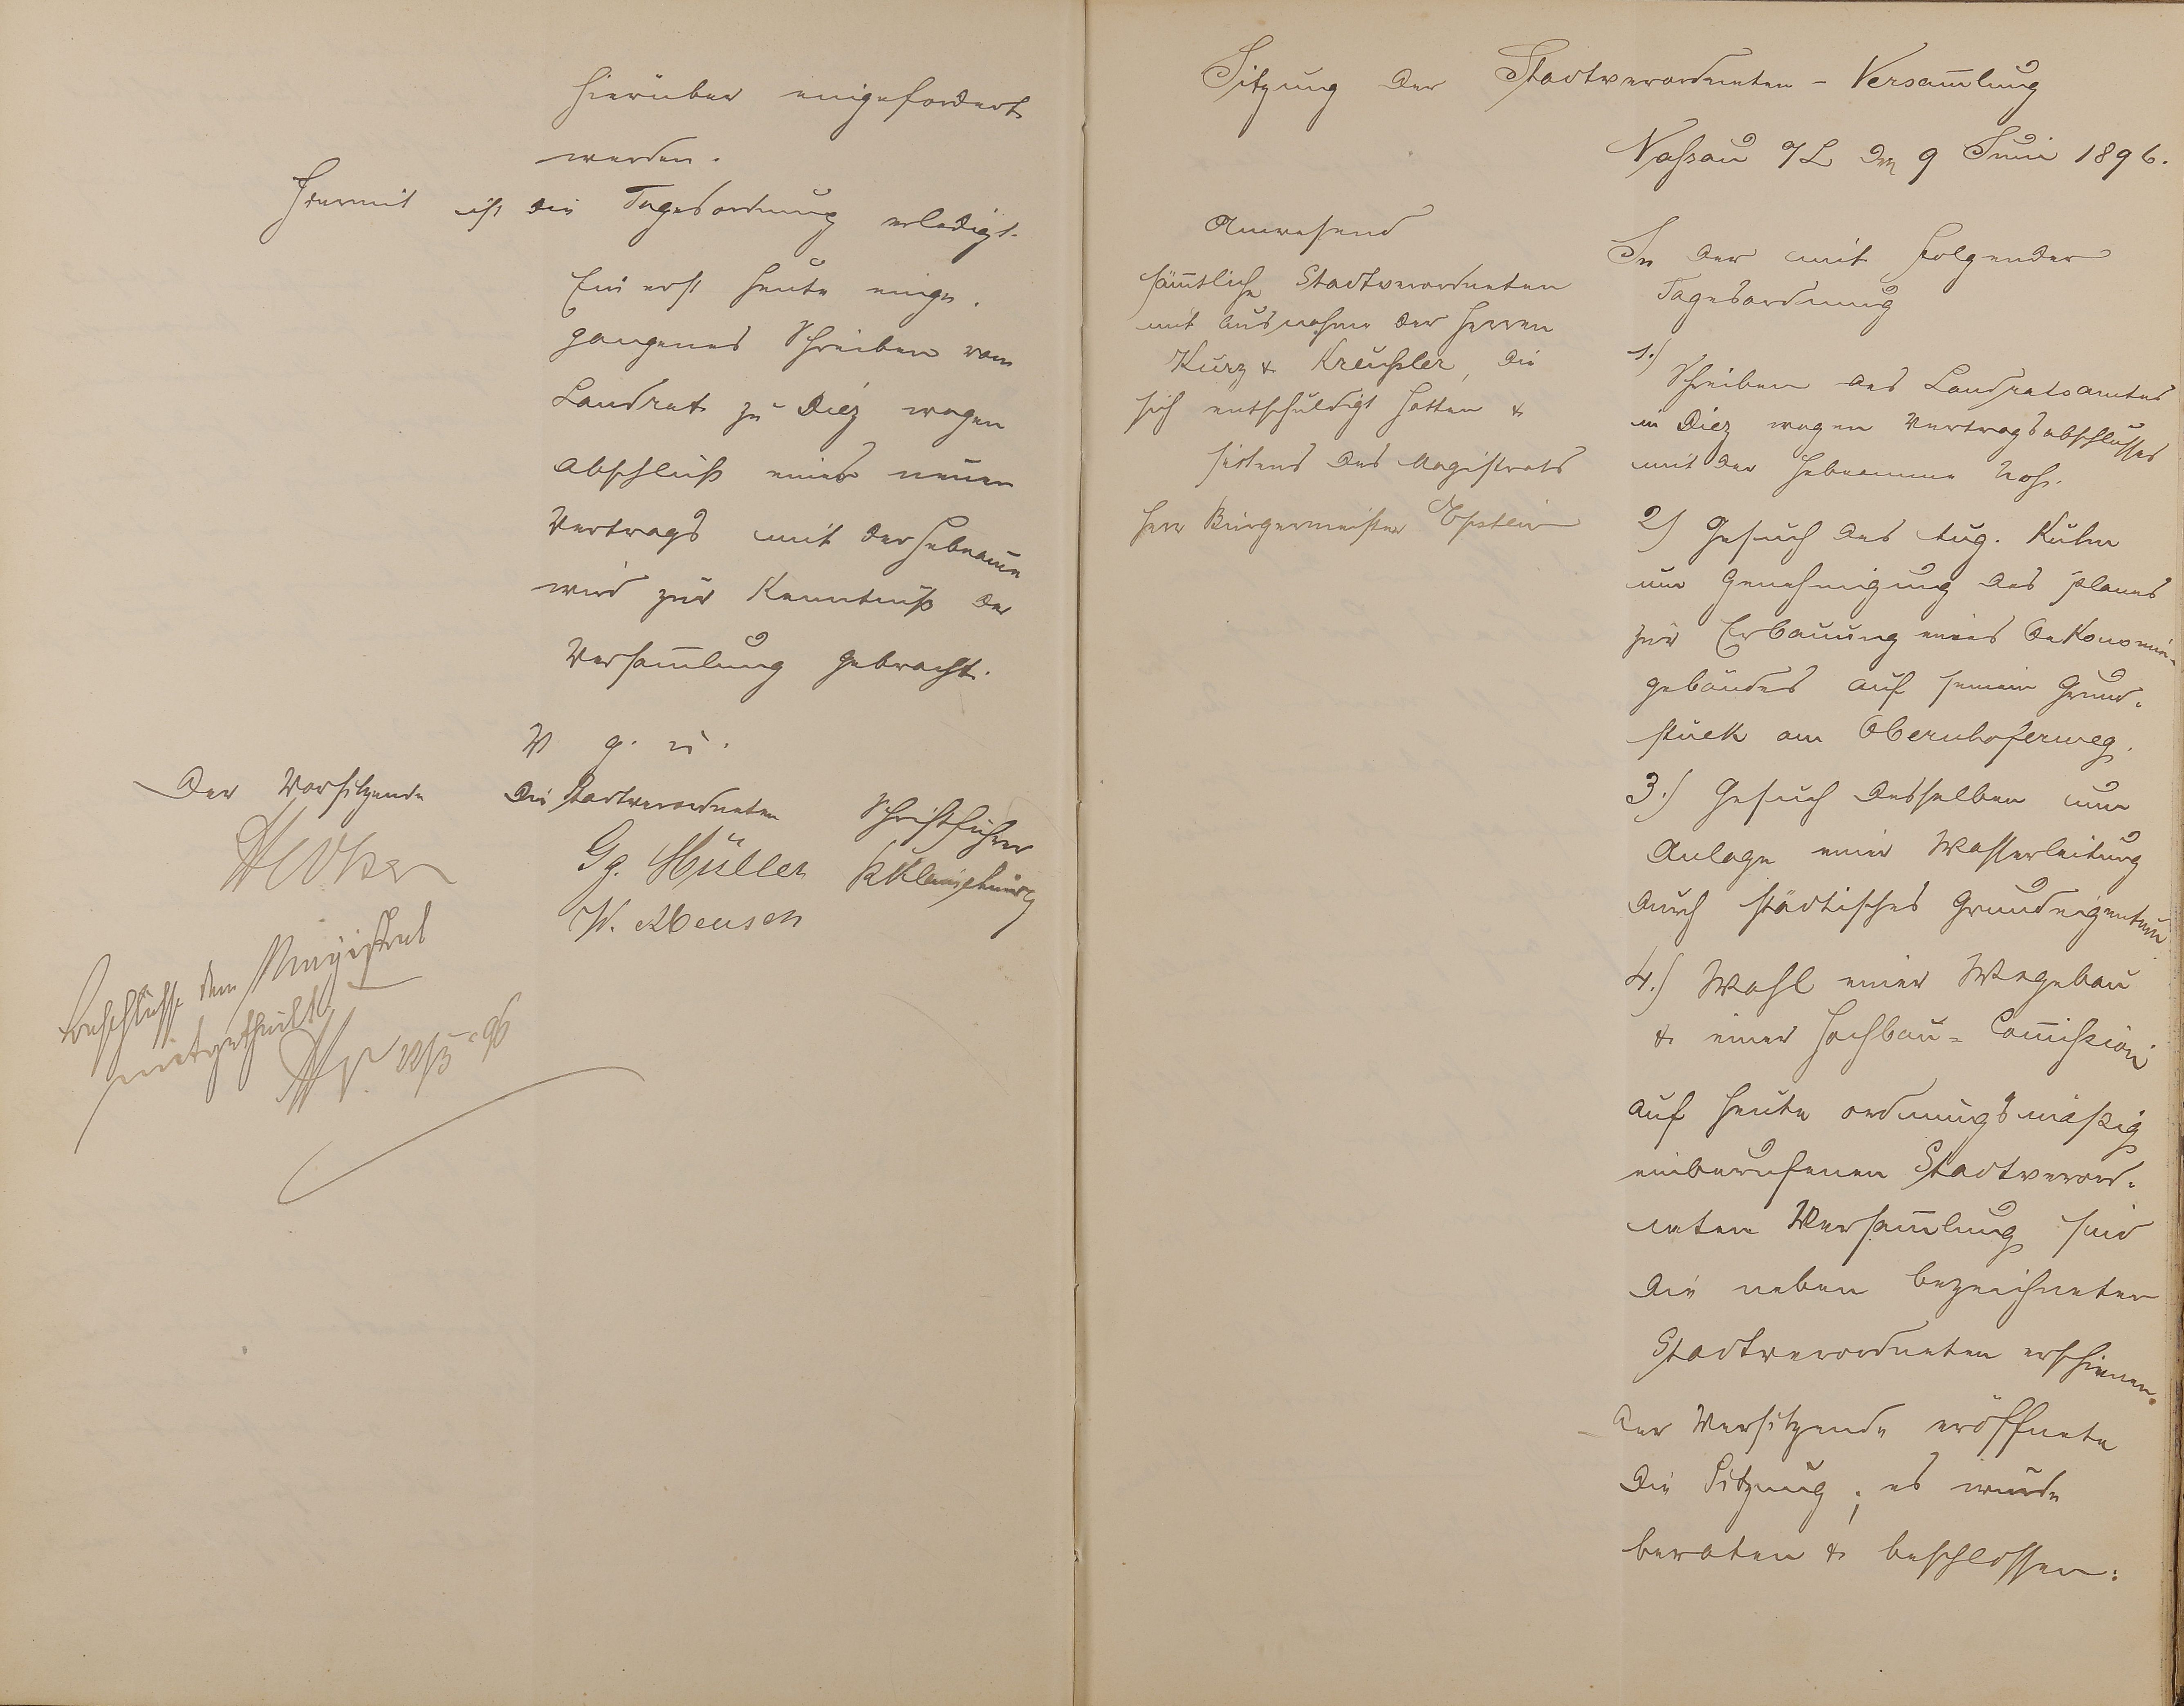 hierüber eingefordert
werden.
Hiermit ist die Tagesordnung erledigt.
Ein erst heute einge-
gangenes Schreiben vom
Landrat zu Diez wegen
Abschluß eines neuen
Vertrags mit der Hebam̄e
wird zur Kenntniß der
Versam̄lung gebracht.
V g. u.
Der Vorsitzende
Die Stadtverordneten
Schriftführer
Gg. Müller
W.
Beschlüsse dem Magistrat
mitgetheilt
22/5 96
Sitzung der Stadtverordneten - Versam̄lung
Nassau a/L den 9 Juni 1896.
Anwesend
säm̄tliche Stadtverordneten
mit Ausnahme der Herren
Kurz & Kreußler, die
sich entschuldigt hatten &
seitens des Magistrats
Herr Bürgermeister Epstein
In der mit folgender
Tagesordnung
1.) Schreiben des Landratsamtes
in Diez wegen Vertragsabschlusses
mit der Hebamme
2) Gesuch des Aug. Kuhn
um Genehmigung des Planes
zur Erbauung eines Oekonomie-
gebäudes auf seinem Grund-
stück am Obernhoferweg.
3.) Gesuch desselben um
Anlage einer Wasserleitung
durch städtisches Grundeigentum
4.) Wahl einer Wegebau
& einer Hochbau- Com̄ission
auf heute ordnungsmäßig
einberufenen Stadtverord-
neten Versam̄lung sind
die neben bezeichneten
Stadtverordneten erschienen.
Der Vorsitzende eröffnete
die Sitzung; es wurde
beraten & beschlossen: